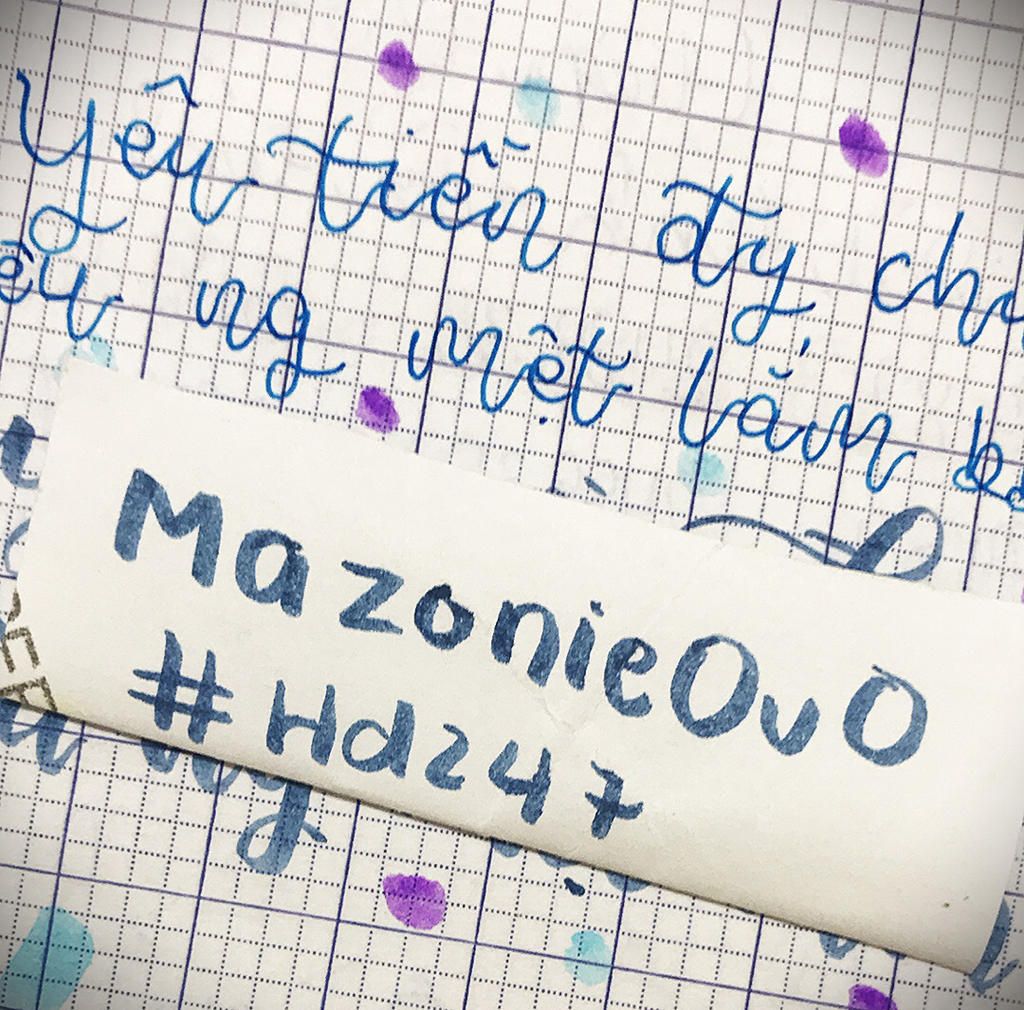 Yêu tiền đy ch
êu ng mệt lắm b
MazonieOvO
#Hdz47